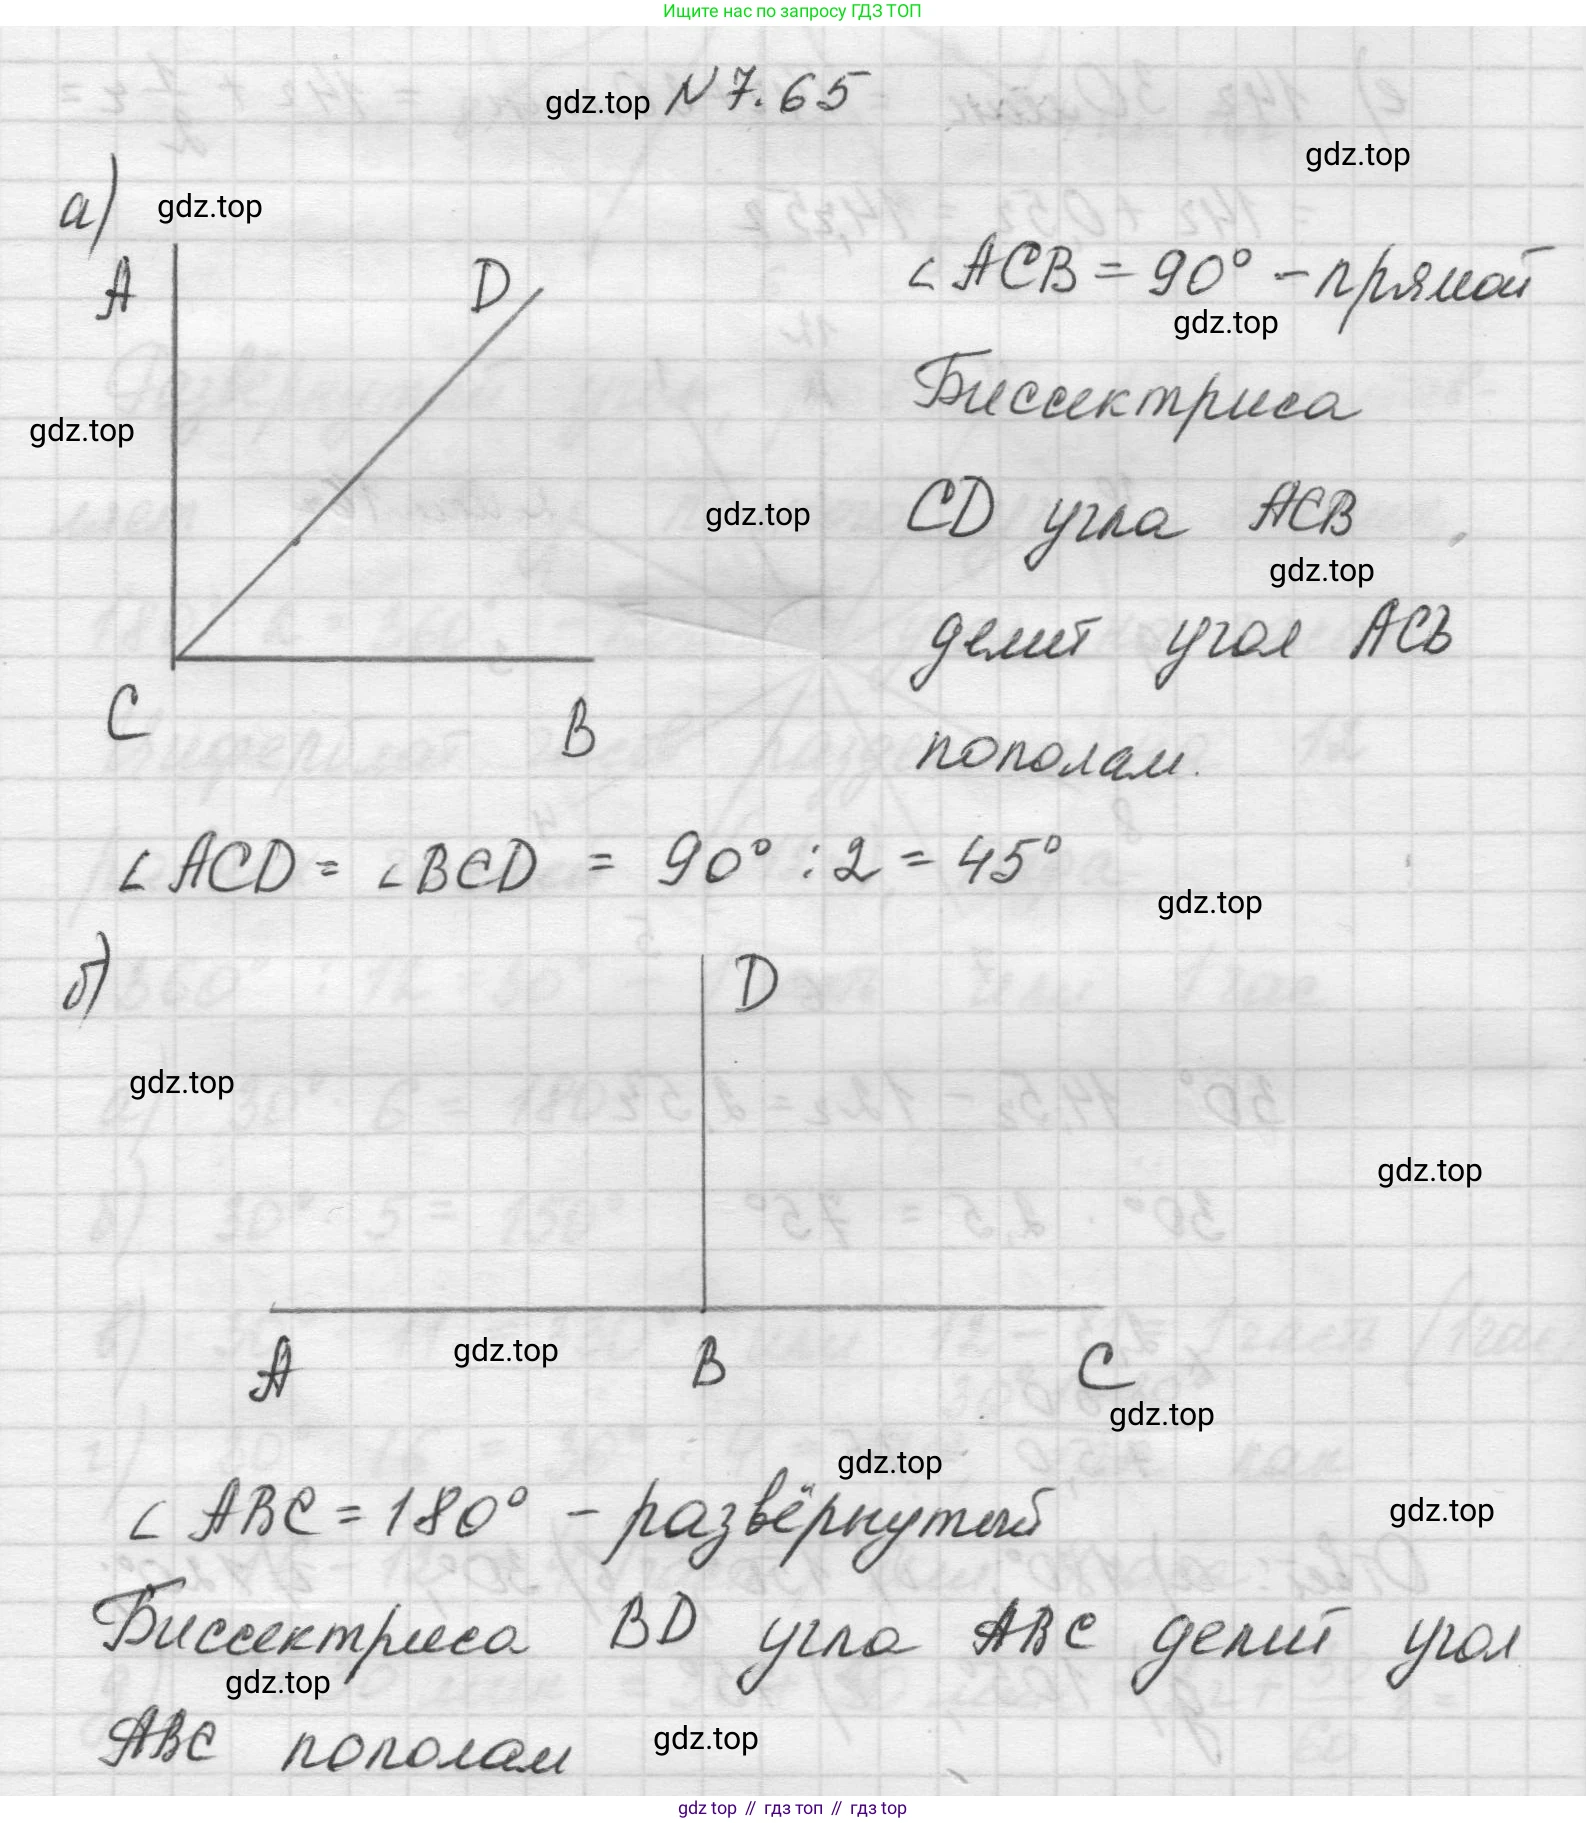 Ищите нас по запросу ГДЗ ТОП
gdz.top № 7.65
gdz.top
а) gdz.top
A D
∠ ACB = 90° - прямой
gdz.top
Биссектриса
gdz.top
gdz.top
CD угла ACB
gdz.top
делит угол ACB
C B
пополам.
∠ ACD = ∠ BCD = 90° : 2 = 45°
gdz.top
б)
D
gdz.top
gdz.top
A gdz.top B C
gdz.top
gdz.top
∠ ABC = 180° - развёрнутый
gdz.top
Биссектриса BD угла ABC делит угол
gdz.top
ABC пополам
gdz.top
gdz top // гдз топ // гдз top